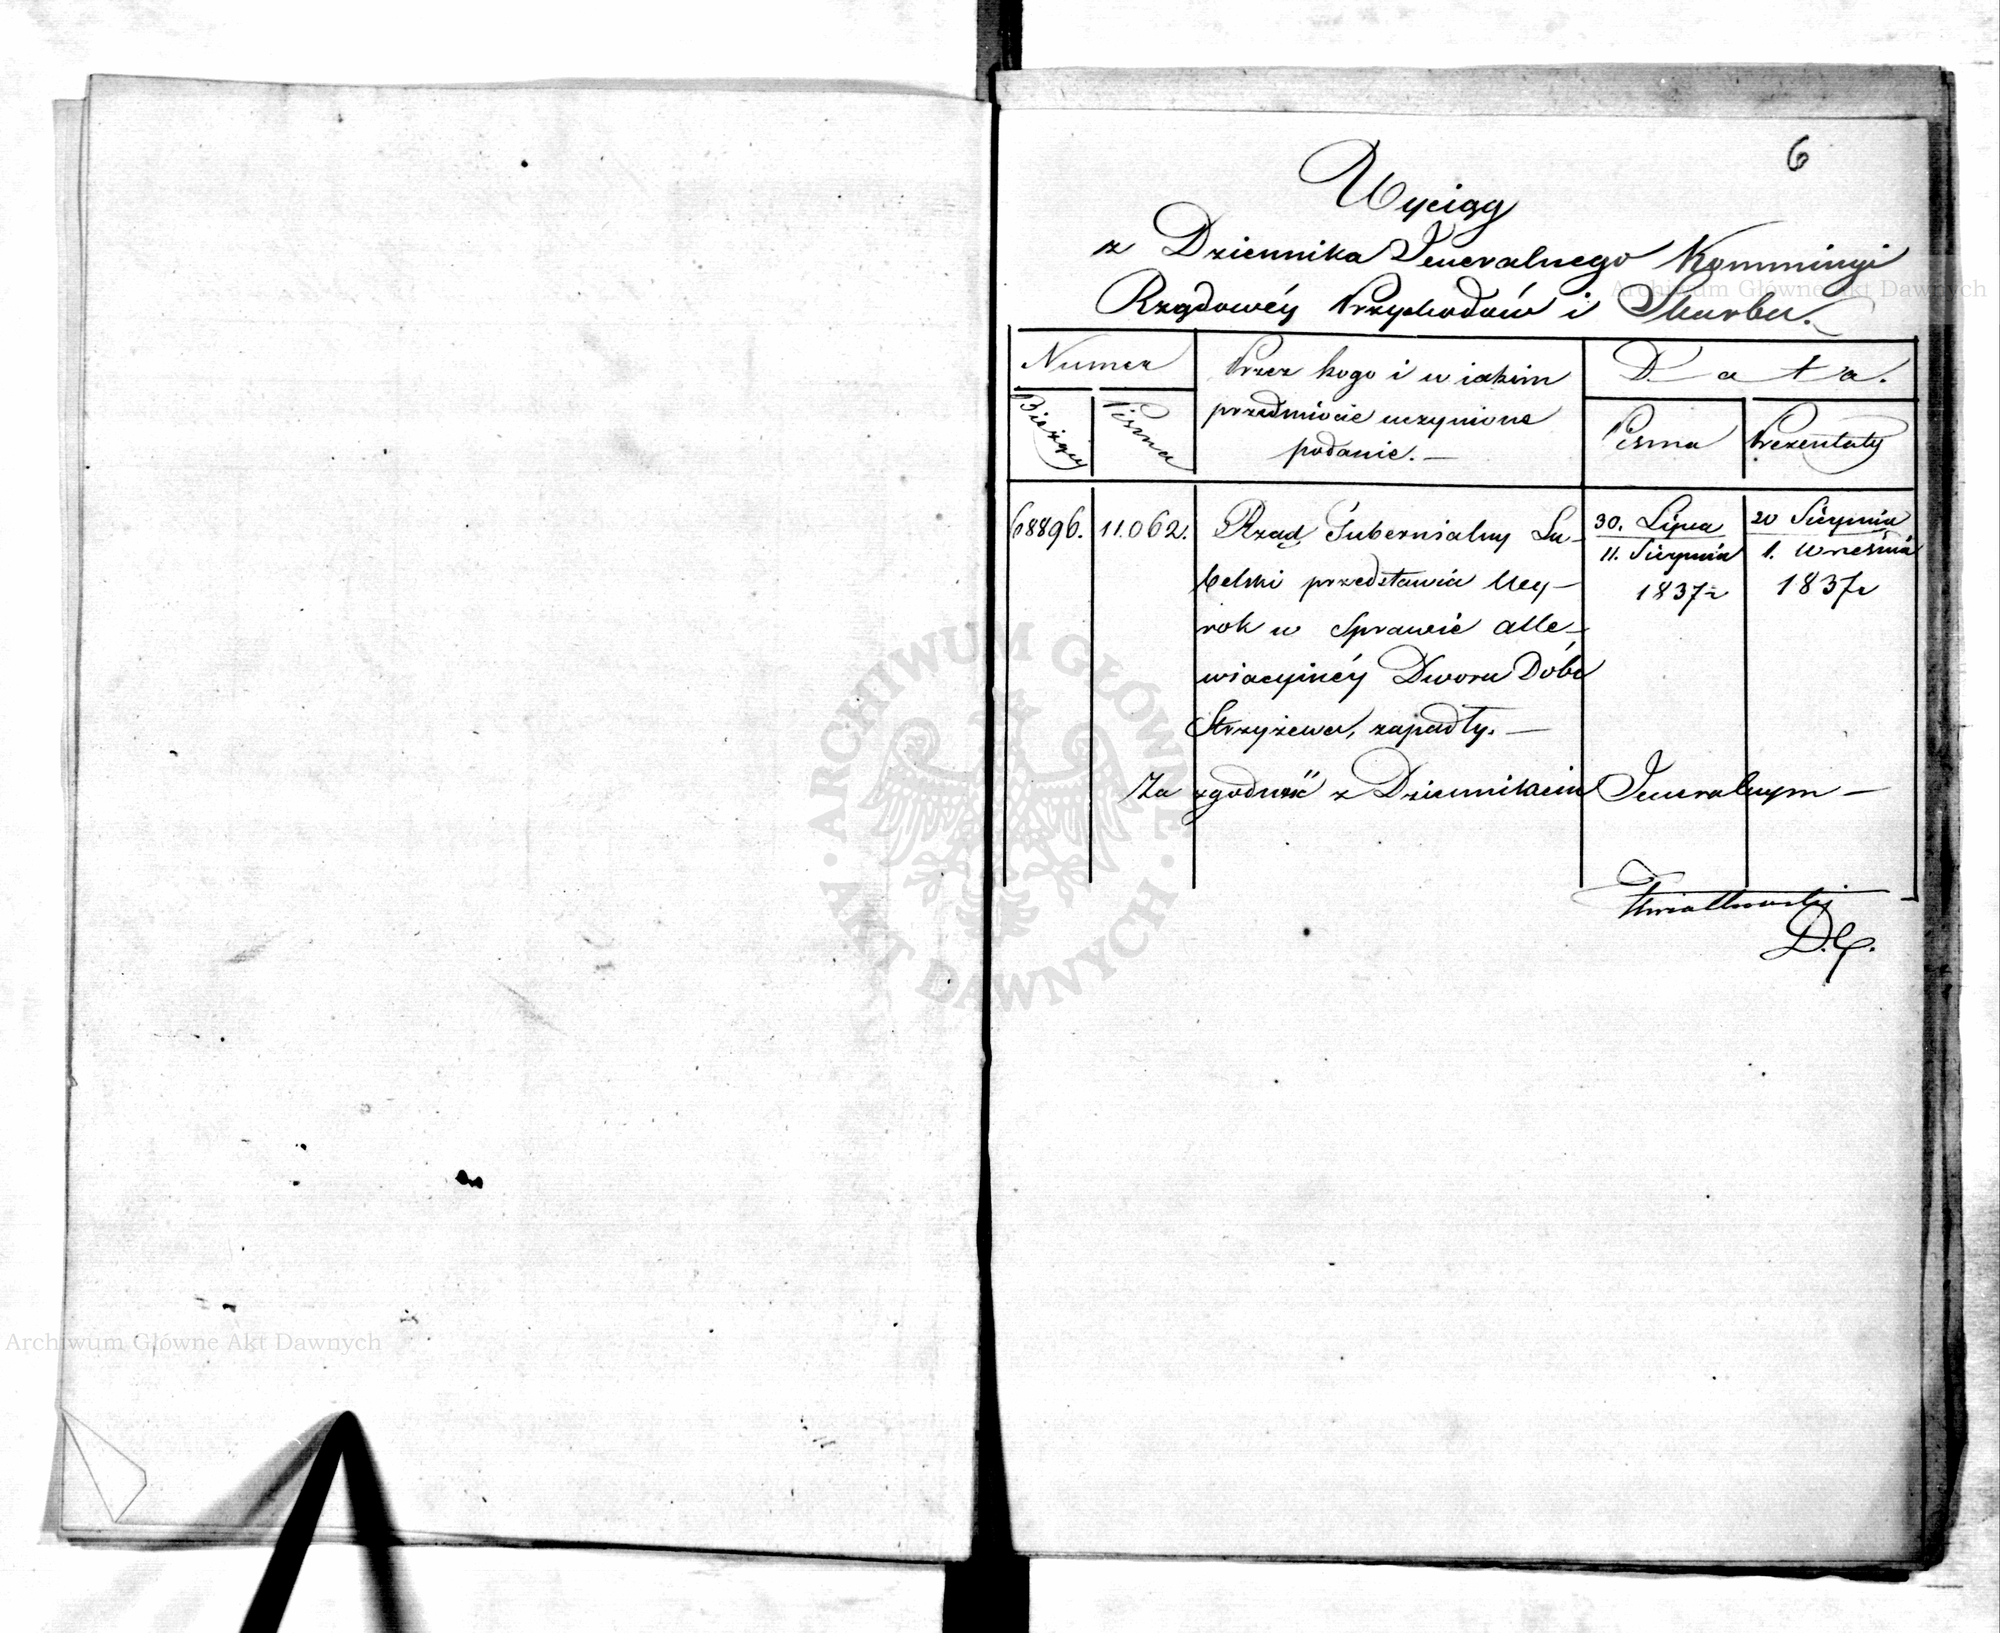 6
Wyciąg
z Dziennika Jeneralnego Kommissyi
Rządowéy Przychodów i Skarbu.
Numer
Przez kogo i w iakim
przedmiocie uczynione
podanie. —
D a t a.
Bieżący
Pisma
Pisma
Prezentaty
68896.
11.062.
Rząd Gubernialny Lu-
belski przedstawia Wy-
rok w Sprawie alle-
wiacyinéy Dworu Dóbr
Strzyżewa, zapadły. —
30. Lipca
11. Sierpnia
1837 r
20 Sierpnia
1. Września
1837 r
Za zgodność z Dziennikiem Jeneralnym —
Kwiatkowski
Archiwum Główne Akt Dawnych
ARCHIWUM GŁÓWNE
AKT DAWNYCH
Archiwum Główne Akt Dawnych